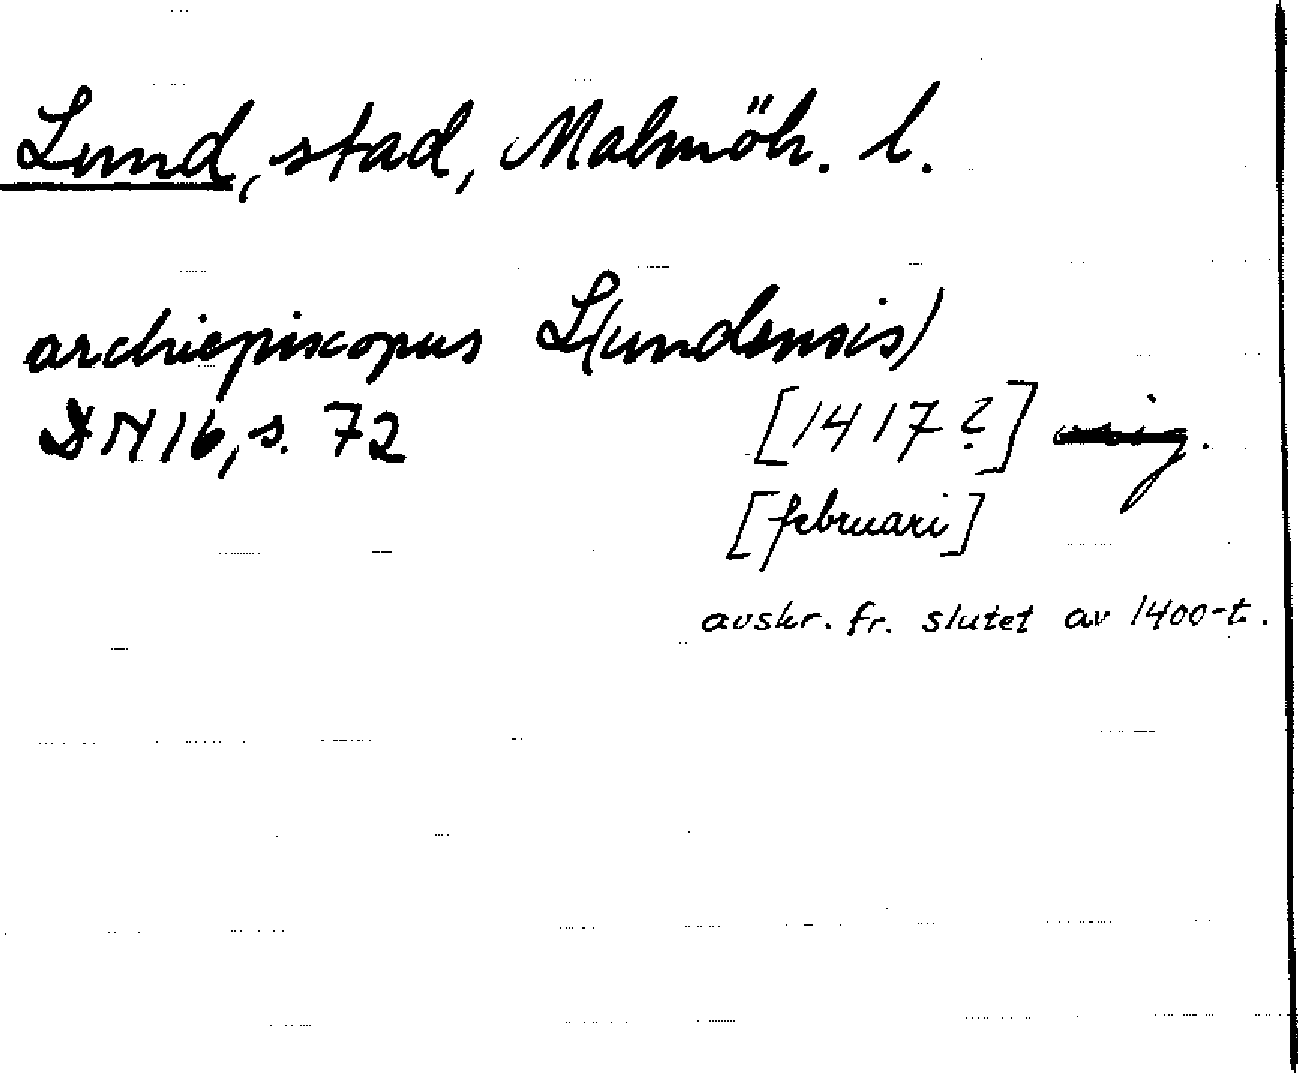 Lund, stad, Malmöh. l.
archiepiscopus L(undensis)
DN 16, s. 72 [1417?]
[februari]
avskr. fr. slutet av 1400-t.